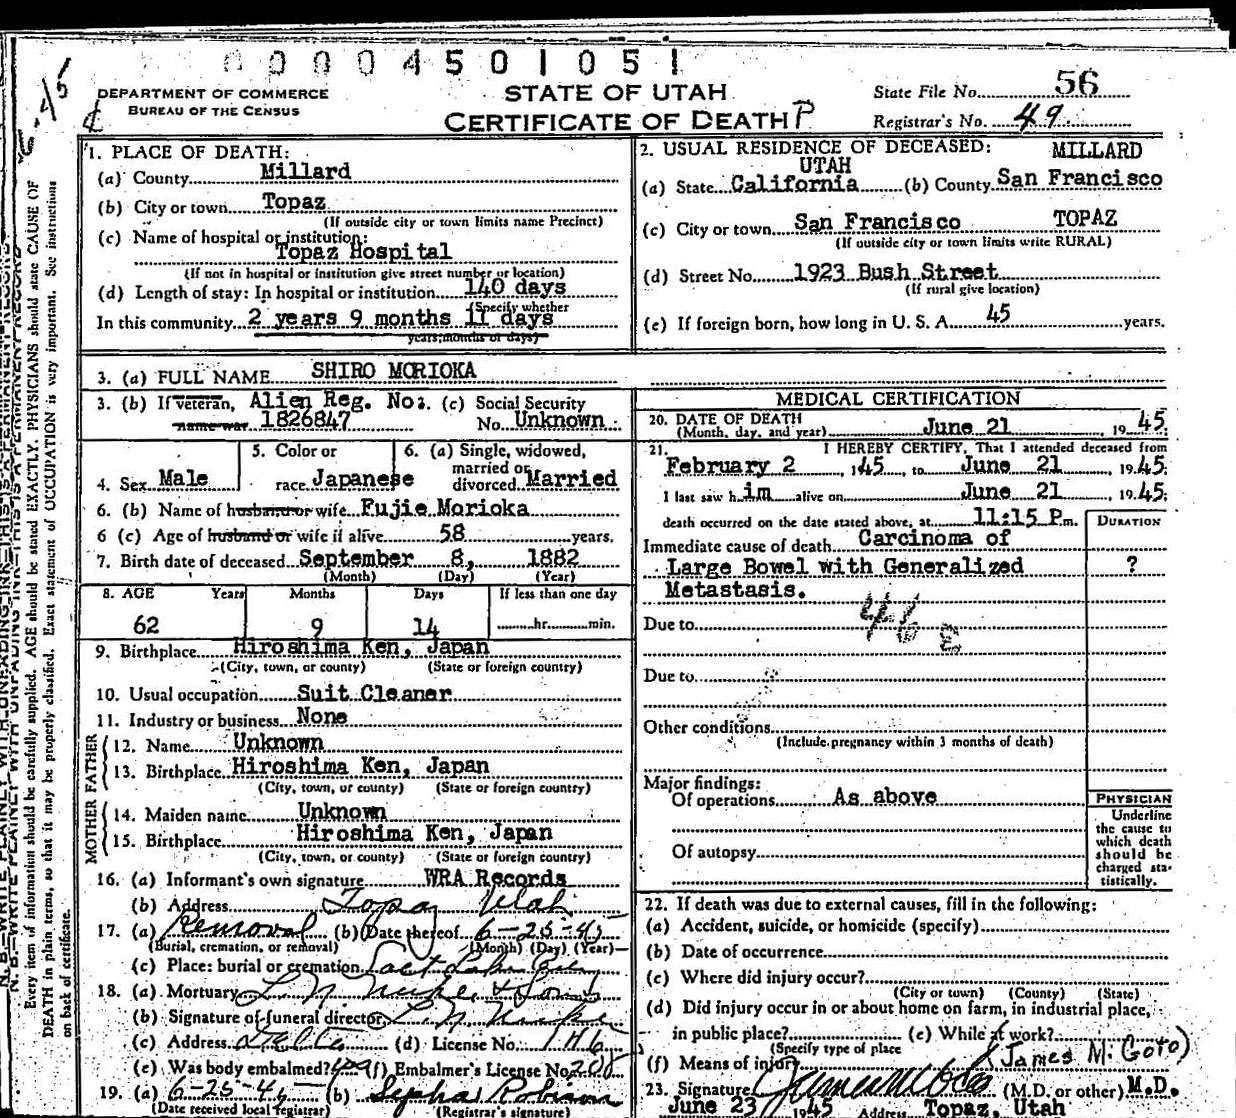 00004501051
DEPARTMENT OF COMMERCE
BUREAU OF THE CENSUS
STATE OF UTAH
CERTIFICATE OF DEATH P
State File No. 56
Registrar's No. 49
1. PLACE OF DEATH:
(a) County Millard
(b) City or town Topaz
(If outside city or town limits name Precinct)
(c) Name of hospital or institution:
Topaz Hospital
(If not in hospital or institution give street number or location)
(d) Length of stay: In hospital or institution 140 days
(Specify whether
In this community 2 years 9 months 11 days
years, months or days)
2. USUAL RESIDENCE OF DECEASED: MILLARD
UTAH
(a) State California (b) County San Francisco
(c) City or town San Francisco TOPAZ
(If outside city or town limits write RURAL)
(d) Street No. 1923 Bush Street
(If rural give location)
(e) If foreign born, how long in U. S. A. 45 years.
3. (a) FULL NAME SHIRO MORIOKA
3. (b) If veteran, Alien Reg. No: (c) Social Security
name war 1826847 No. Unknown
4. Sex Male
5. Color or
race Japanese
6. (a) Single, widowed,
married or
divorced Married
6. (b) Name of husband or wife Fujie Morioka
6 (c) Age of husband or wife if alive 58 years.
7. Birth date of deceased September 8, 1882
(Month) (Day) (Year)
8. AGE Years Months Days If less than one day
62 9 14 hr. min.
9. Birthplace Hiroshima Ken, Japan
(City, town, or county) (State or foreign country)
10. Usual occupation Suit Cleaner
11. Industry or business None
FATHER
12. Name Unknown
13. Birthplace Hiroshima Ken, Japan
(City, town, or county) (State or foreign country)
MOTHER
14. Maiden name Unknown
15. Birthplace Hiroshima Ken, Japan
(City, town, or county) (State or foreign country)
16. (a) Informant's own signature WRA Records
(b) Address Topaz Utah
17. (a) Removal (b) Date thereof 6-25-45
(Burial, cremation, or removal) (Month) (Day) (Year)
(c) Place: burial or cremation Salt Lake
18. (a) Mortuary L. N. & Sons
(b) Signature of funeral director L. N.
(c) Address Delta (d) License No. 146
(e) Was body embalmed? (f) Embalmer's License No. 208
19. (a) 6-25-45 (b) Robison
(Date received local registrar) (Registrar's signature)
MEDICAL CERTIFICATION
20. DATE OF DEATH
(Month, day, and year) June 21 1945
21. I HEREBY CERTIFY, That I attended deceased from
February 2, 1945, to June 21, 1945
I last saw him alive on June 21, 1945
death occurred on the date stated above, at 11:15 P.m.
DURATION
Immediate cause of death Carcinoma of
Large Bowel with Generalized ?
Metastasis.
46 E
Due to
Due to
Other conditions
(Include pregnancy within 3 months of death)
Major findings:
Of operations As above
Of autopsy
PHYSICIAN
Underline
the cause to
which death
should be
charged sta-
tistically.
22. If death was due to external causes, fill in the following:
(a) Accident, suicide, or homicide (specify)
(b) Date of occurrence
(c) Where did injury occur?
(City or town) (County) (State)
(d) Did injury occur in or about home on farm, in industrial place,
in public place? (e) While at work?
(Specify type of place
(f) Means of injury (James M. Goto)
23. Signature James M Goto (M.D. or other) M.D.
June 23, 1945 Address Topaz, Utah
Every item of information should be carefully supplied. AGE should be stated EXACTLY. PHYSICIANS should state CAUSE OF
DEATH in plain terms, so that it may be properly classified. Exact statement of OCCUPATION is very important. See instructions
on back of certificate.